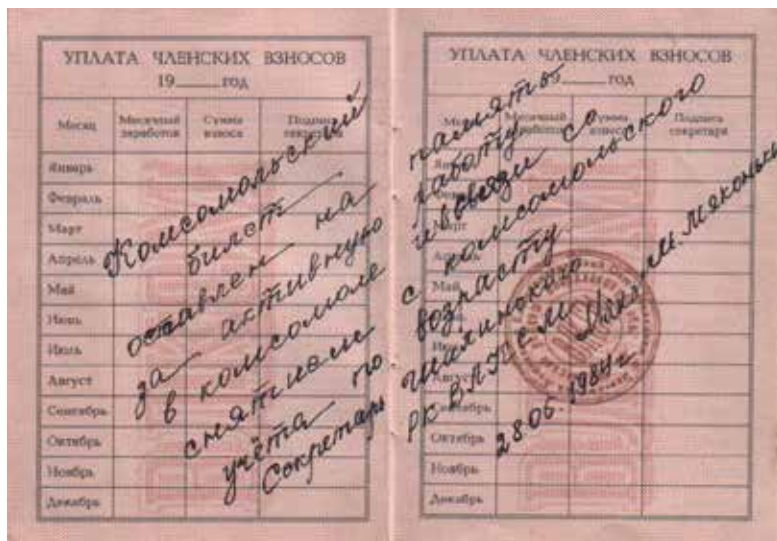 УПЛАТА ЧЛЕНСКИХ ВЗНОСОВ
19 ____ год
Месяц Месячный заработок Сумма взноса Подпись секретаря
Январь
Февраль
Март
Апрель
Май
Июнь
Июль
Август
Сентябрь
Октябрь
Ноябрь
Декабрь
УПЛАТА ЧЛЕНСКИХ ВЗНОСОВ
____ год
Месячный заработок Сумма взноса Подпись секретаря
Май
Август
Сентябрь
Октябрь
Ноябрь
Декабрь
Комсомольский
билет
оставлен на память
за активную работу
в комсомоле и в связи со
снятием с комсомольского
учёта по возрасту
Секретарь
РК ВЛКСМ
28.06.1984г.